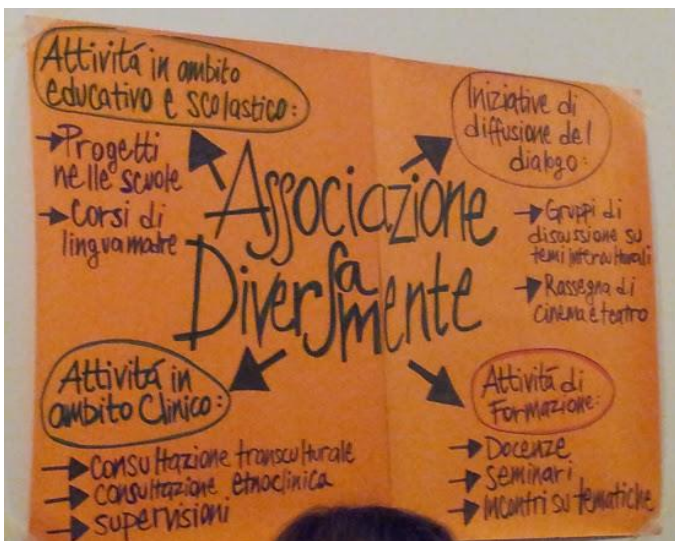 Attivitá in ambito
educativo e scolastico:
→ Progetti
nelle scuole
→ Corsi di
lingua madre
Iniziative di
diffusione del
dialogo:
→ Gruppi di
discussione su
temi interculturali
→ Rassegna di
cinema e teatro
Associazione
DiversaMente
Attivitá in
ambito Clinico:
→ Consultazione transculturale
→ consultazione etnoclinica
→ supervisioni
Attivitá di
Formazione:
→ Docenze
→ Seminari
→ Incontri su tematiche